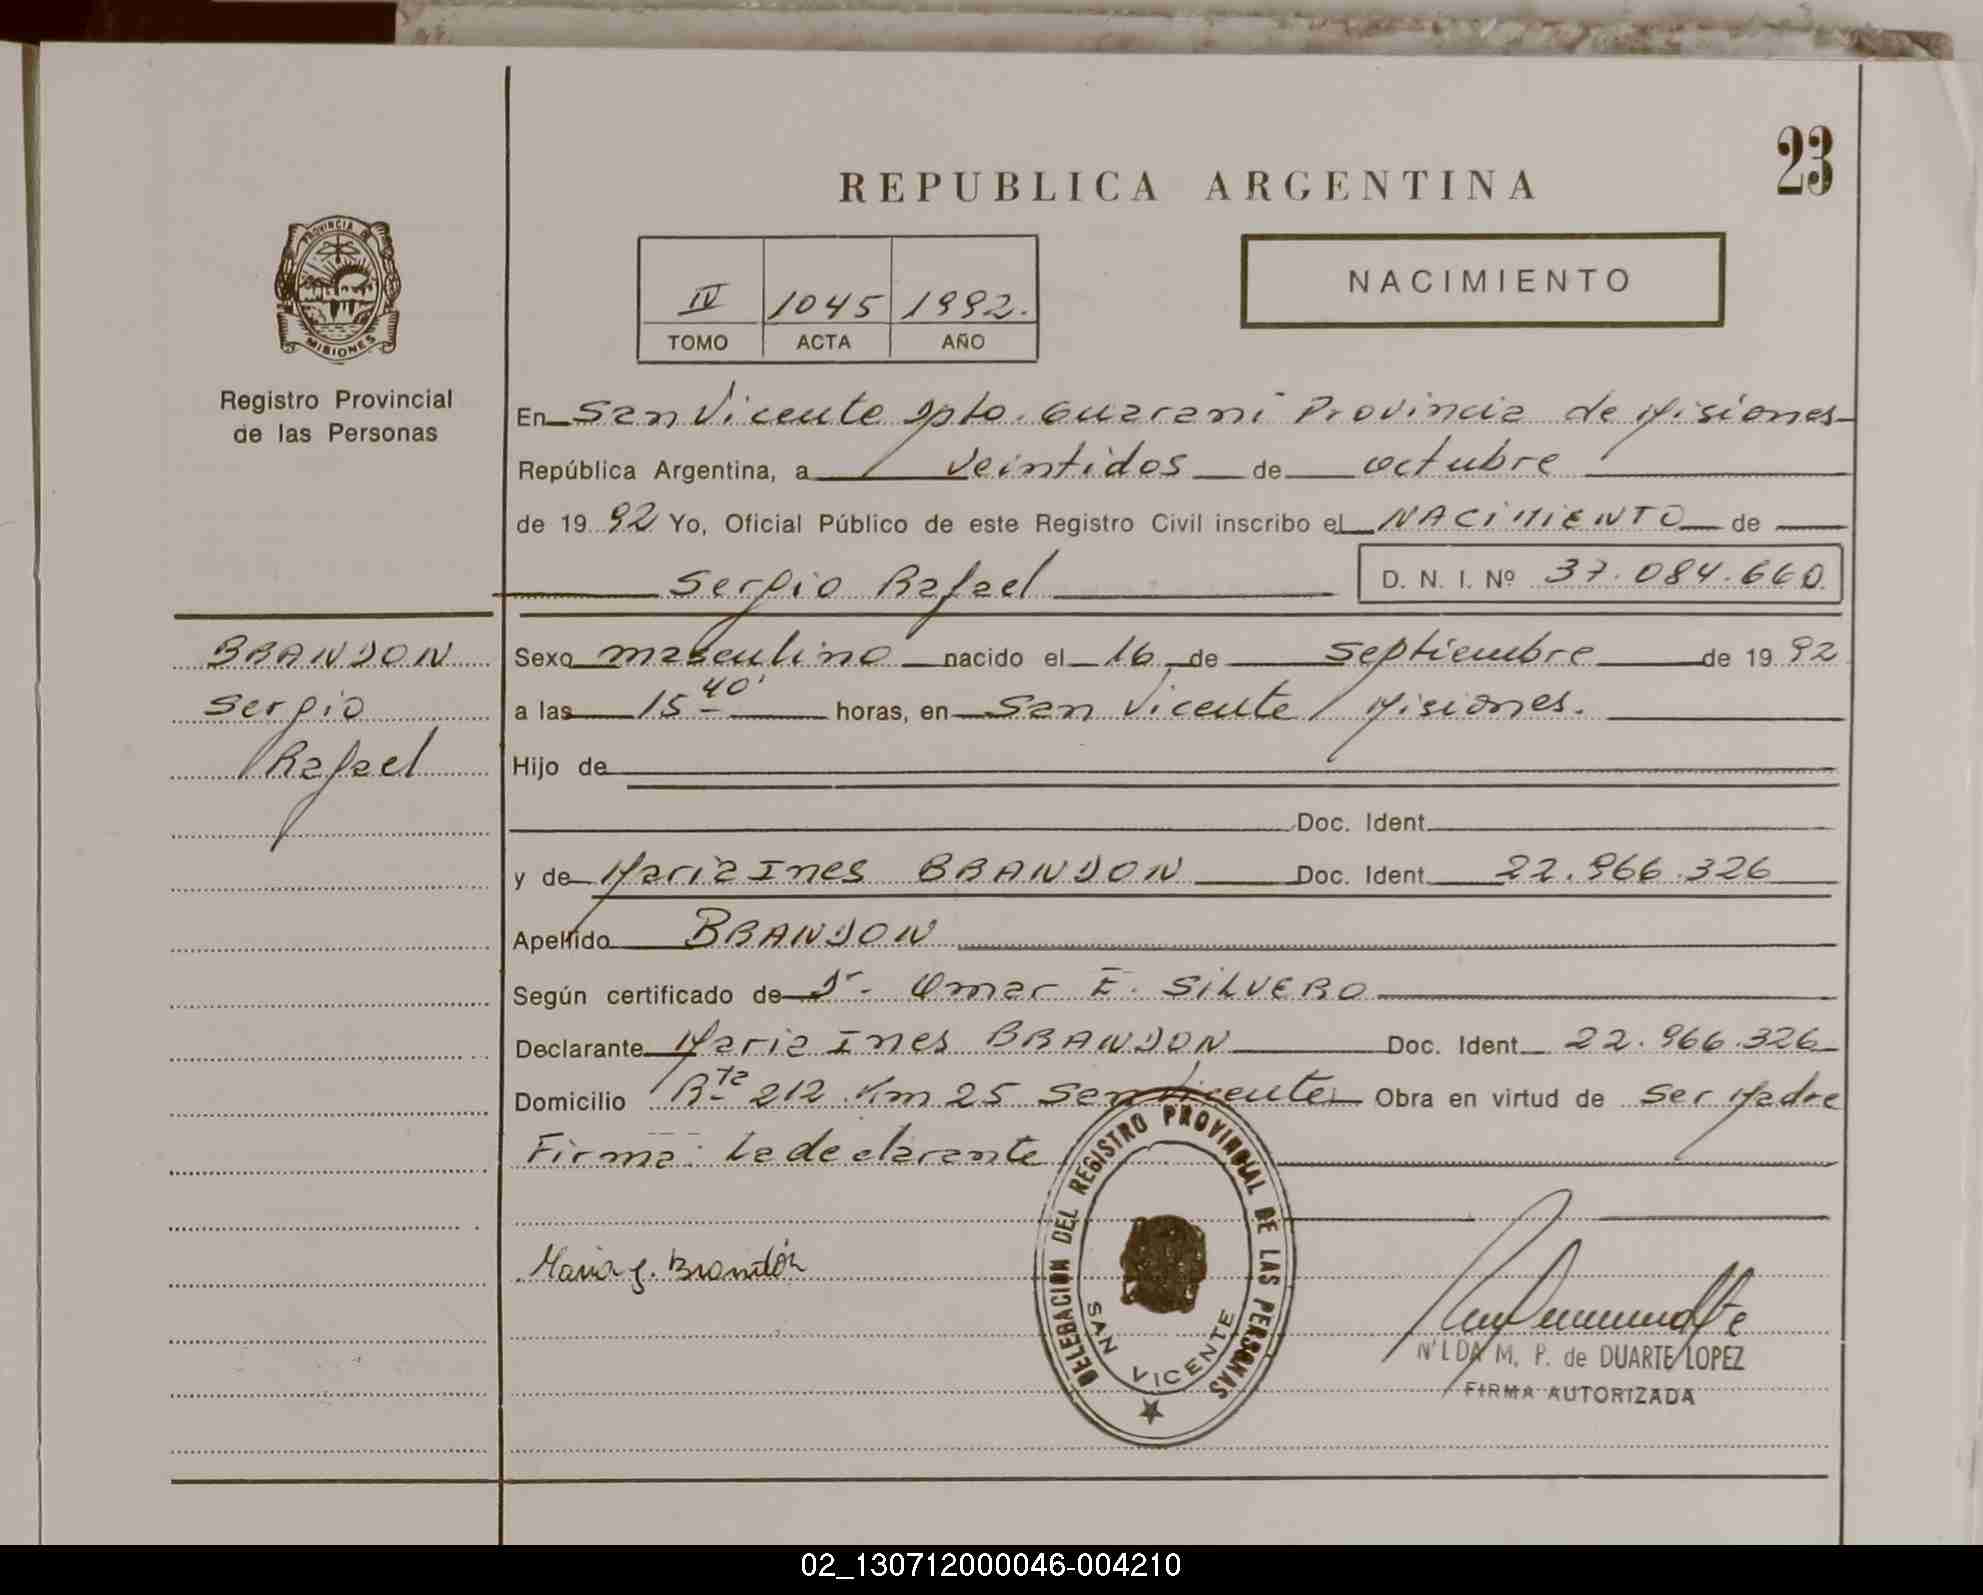 23
REPUBLICA ARGENTINA
PROVINCIA DE
MISIONES
Registro Provincial
de las Personas
IV 1045 1992.
TOMO ACTA AÑO
NACIMIENTO
En San Vicente Dpto. Guaraní Provincia de Misiones
República Argentina, a veintidos de octubre
de 1992 Yo, Oficial Público de este Registro Civil inscribo el NACIMIENTO de
Sergio Rafael D. N. I. Nº 37.084.660
BRANDON
Sergio
Rafael
Sexo masculino nacido el 16 de septiembre de 1992
a las 15 40' horas, en San Vicente Misiones.
Hijo de
Doc. Ident.
y de Maria Ines BRANDON Doc. Ident. 22.966.326
Apellido BRANDON
Según certificado de Dr. Omar E. SILVERO
Declarante Maria Ines BRANDON Doc. Ident. 22.966.326
Domicilio Rta 212 Km 25 San Vicente Obra en virtud de ser Madre
Firma: La declarante
DELEGACION DEL REGISTRO PROVINCIAL DE LAS PERSONAS
SAN VICENTE
Maria I. Brandón
NILDA M. P. de DUARTE LOPEZ
FIRMA AUTORIZADA
02_130712000046-004210